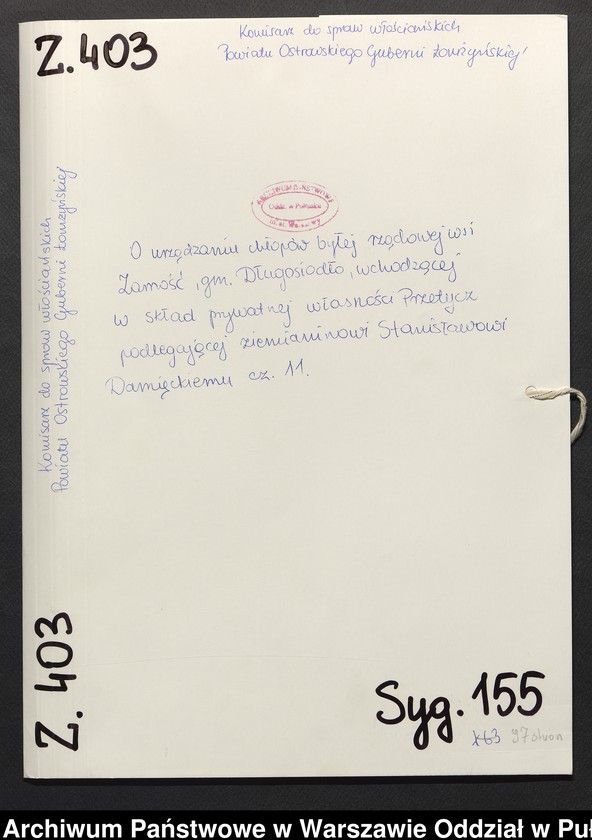 Z.403
Komisarz do spraw włościańskich
Powiatu Ostrowskiego Guberni Łomżyńskiej
ARCHIWUM PAŃSTWOWE
Oddz. w Pułtusku
O urządzaniu chłopów byłej rządowej wsi
Zamość, gm. Długosiodło, wchodzącej
w skład prywatnej własności Przetycz
podlegającej ziemianinowi Stanisławowi
Damięckiemu cz. 11.
Komisarz do spraw włościańskich
Powiatu Ostrowskiego Guberni Łomżyńskiej
Z. 403
Syg. 155
97 stron
Archiwum Państwowe w Warszawie Oddział w Puł